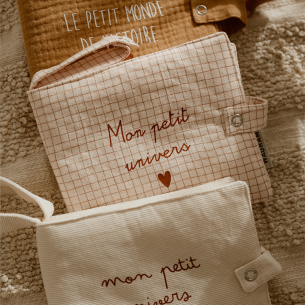 LE PETIT MONDE
Mon petit
univers
mon petit
univers